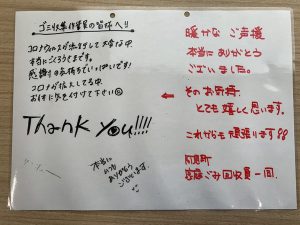 ゴミ収集作業員の皆様へ!!
コロナウィルスが流行して大変な中
本当にごくろうさまです。
感謝の気持ちでいっぱいです!
コロナが拡大してる中
お体に気を付けて下さい
Thank you!!!!
本当に
いつも
ありがとう
ございます。
暖かな ご声援
本当に ありがとう
ございました。
← そのお気持
とても 嬉しく思います。
これからも 頑張ります
ごみ回収員一同.